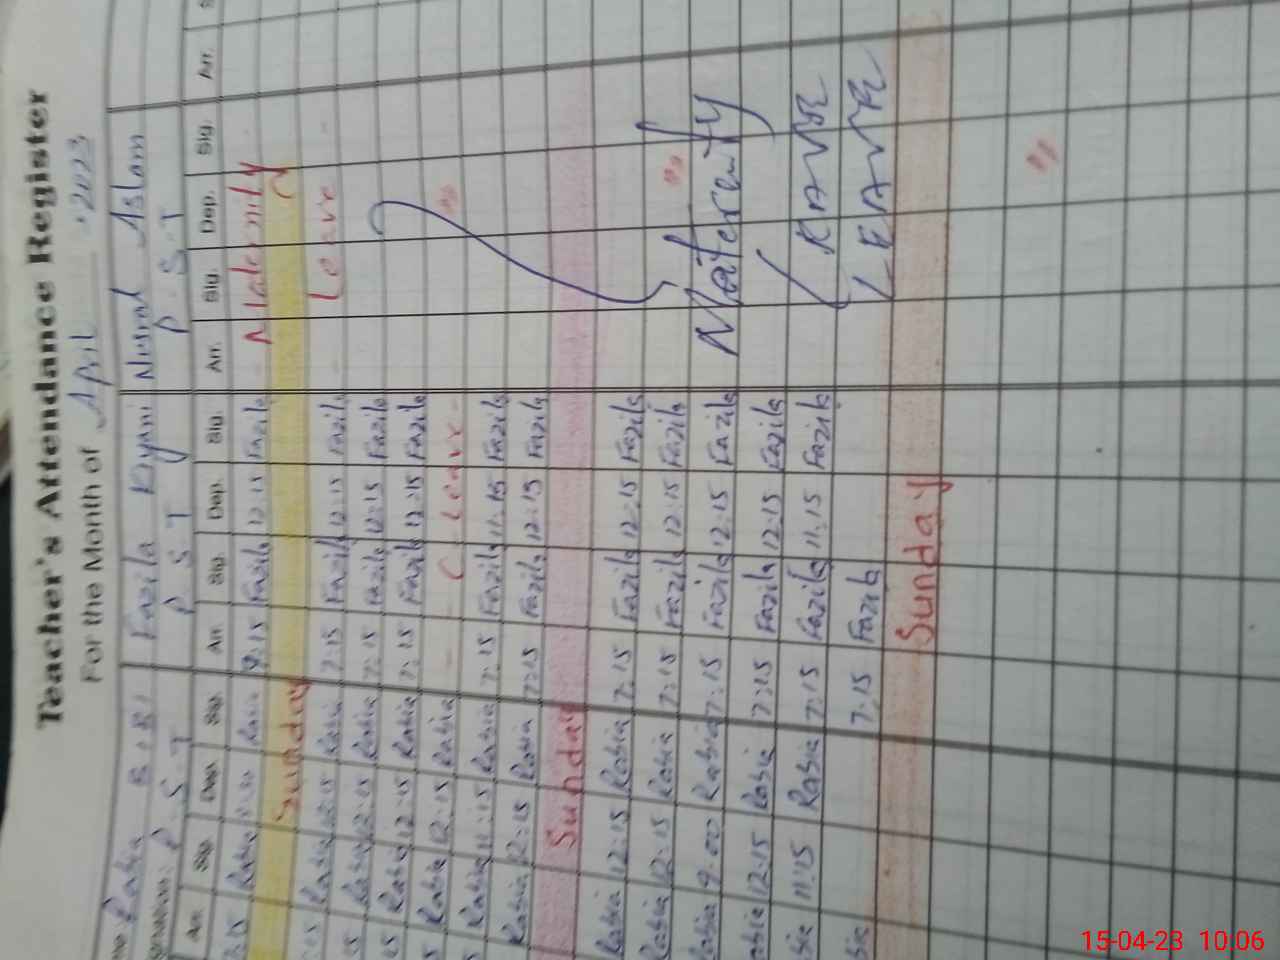 Teacher's Attendance Register
For the Month of April 2023
Rabia BiBi Fazila Kiyani Nusrat Aslam
P.S.T P S T P.S.T
Arr. Sig. Dep. Sig. Arr. Sig. Dep. Sig. Arr. Sig. Dep. Sig. Arr.
7:15 Rabia Rabia 7:15 Fazila 12:15 Fazila Maternity
Sunday
Rabia 12:15 Rabia 7:15 Fazila 12:15 Fazila Leave
Rabia 12:15 Rabia 7:15 Fazila 12:15 Fazila
Rabia 12:15 Rabia 7:15 Fazila 12:15 Fazila
Rabia 12:15 Rabia C. Leave
Rabia 11:15 Rabia 7:15 Fazila 11:15 Fazila
Rabia 12:15 Rabia 7:15 Fazila 12:15 Fazila
Sunday
Rabia 12:15 Rabia 7:15 Fazila 12:15 Fazila
Rabia 12:15 Rabia 7:15 Fazila 12:15 Fazila
Rabia 9:00 Rabia 7:15 Fazila 12:15 Fazila Maternity
Rabia 12:15 Rabia 7:15 Fazila 12:15 Fazila
11:15 Rabia 7:15 Fazila 11:15 Fazila
7:15 Fazila LEAVE
Sunday
15-04-23 10:06